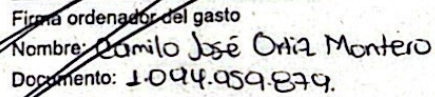 Firma ordenador del gasto
Nombre: Camilo José Ortiz Montero
Documento: 1.094.959.879.